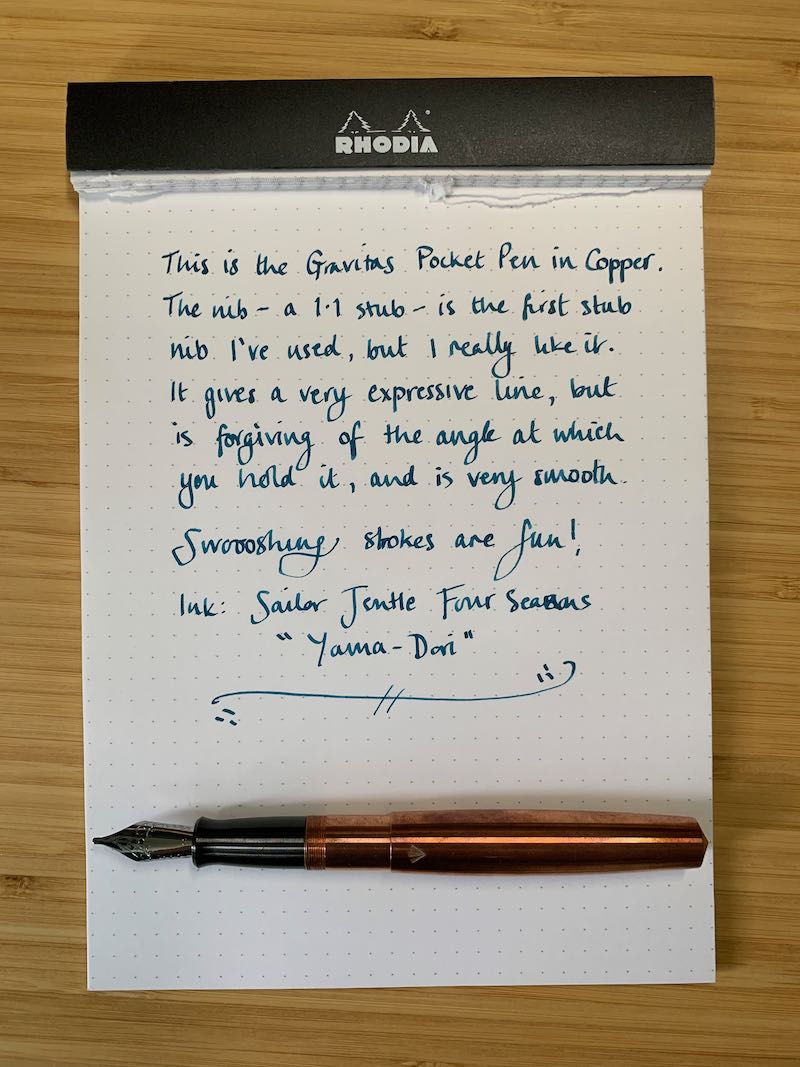 RHODIA
This is the Gravitas Pocket Pen in Copper.
The nib – a 1·1 stub – is the first stub
nib I've used, but I really like it.
It gives a very expressive line, but
is forgiving of the angle at which
you hold it, and is very smooth.
Swoooshing strokes are fun!
Ink: Sailor Jentle Four Seasons
"Yama-Dori"